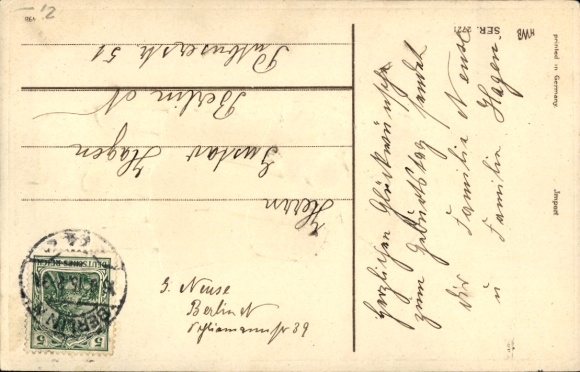 Herrn
Gustav Hagen
Berlin N
Putbuserstr 51
Herzlichen Glückwunsch
zum Geburtstag sendet
dir Familie Neuse
u
Familie Hagen.
G. Neuse
Berlin N
Schliemannstr 39
SER. 272
HWB
printed in Germany.
Import
DEUTSCHES REICH
5 5
BERLIN N